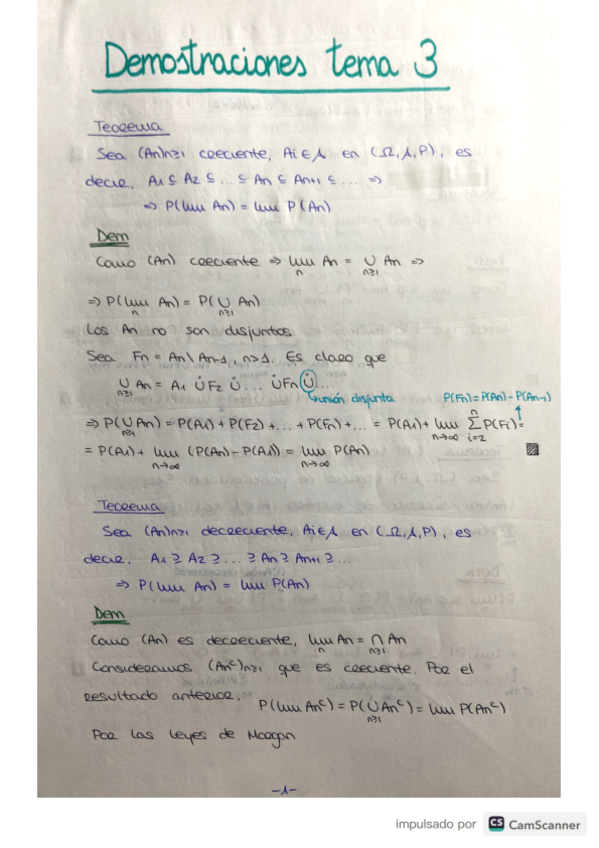 Demostraciones tema 3
Teorema
Sea (An)n≥1 creciente, Ai ∈ A en (Ω, A, P), es
decir, A1 ⊆ A2 ⊆ ... ⊆ An ⊆ An+1 ⊆ ... ⇒
⇒ P(lim An) = lim P(An)
Dem
Como (An) creciente ⇒ lim_n An = ∪_{n≥1} An ⇒
⇒ P(lim_n An) = P(∪_{n≥1} An)
Los An no son disjuntos.
Sea Fn = An \ An-1, n>1. Es claro que
∪_{n≥1} An = A1 ∪̇ F2 ∪̇ ... ∪̇ Fn ∪̇ ...
↳ unión disjunta
P(Fn) = P(An) - P(An-1)
⇒ P(∪_{n≥1} An) = P(A1) + P(F2) + ... + P(Fn) + ... = P(A1) + lim_{n→∞} Σ_{i=2}^{n} P(Fi) =
= P(A1) + lim_{n→∞} (P(An) - P(A1)) = lim_{n→∞} P(An)
Teorema
Sea (An)n≥1 decreciente, Ai ∈ A en (Ω, A, P), es
decir, A1 ⊇ A2 ⊇ ... ⊇ An ⊇ An+1 ⊇ ...
⇒ P(lim An) = lim P(An)
Dem
Como (An) es decreciente, lim_n An = ∩_{n≥1} An
Consideramos (Anᶜ)n≥1 que es creciente. Por el
resultado anterior,
P(lim Anᶜ) = P(∪_{n≥1} Anᶜ) = lim P(Anᶜ)
Por las leyes de Morgan
-1-
impulsado por CS CamScanner